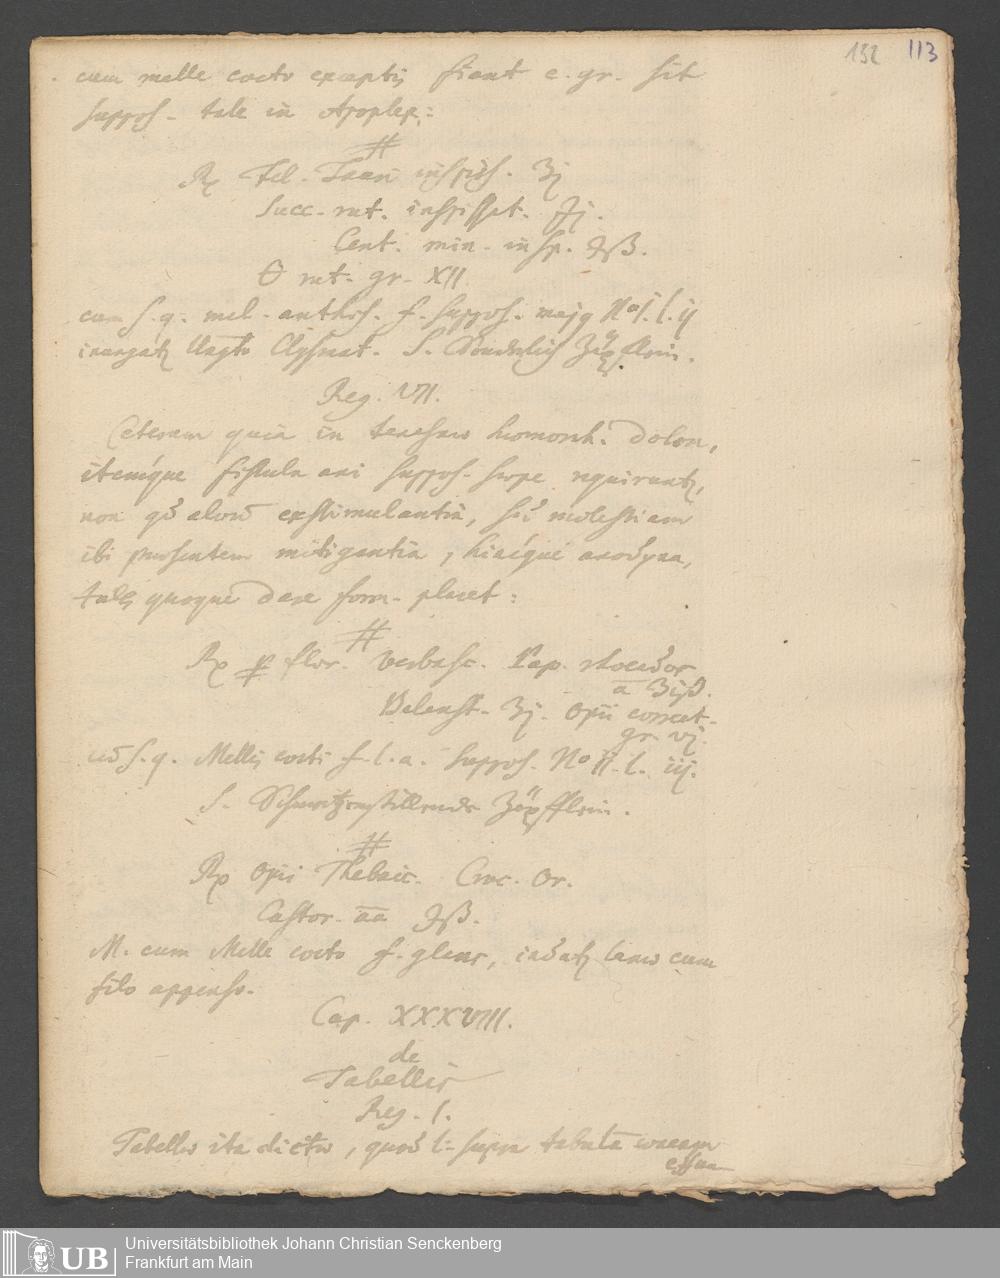 132 113
cum melle cocto exceptis fiant e. gr. sit
suppos. tale in Apoplex:
#
Rx Fel. Tauri inspiss. ʒj
Succ. rut. inspissat. ʒj.
Cent. min. insp. ℈ß.
rut. gr. XII.
cum s. q. mel. anthos. f. suppos. maj9 No j. l. ij
S. Zöpfflein.
Reg. VII.
Ceterum quia in tenesmo hæmorrh. dolor,
itemque fistula ani suppos. sæpe requirunt,
non alvum exstimulantia, molestiam
ibi præsentem mitigantia, hincque anodyna,
tales quoque dare form. placet:
#
Rx flor. Verbasc. Pap. rhoeados
a ʒiß.
Balaust. ʒj. Opii correct.
gr. vj.
s. q. Mellis cocti f. l. a. suppos. No ij. l. iij.
S. Schmertzenstillende Zöpfflein.
#
Rx Opii Thebaic. Croc. Or.
Castor. aa ℈ß.
M. cum Melle cocto f. glans, indatz lano cum
filo appenso.
Cap. XXXVIII.
de
Tabellis
Reg. I.
Tabellæ ita dictæ, quod l: supra tabulam
UB Universitätsbibliothek Johann Christian Senckenberg
Frankfurt am Main